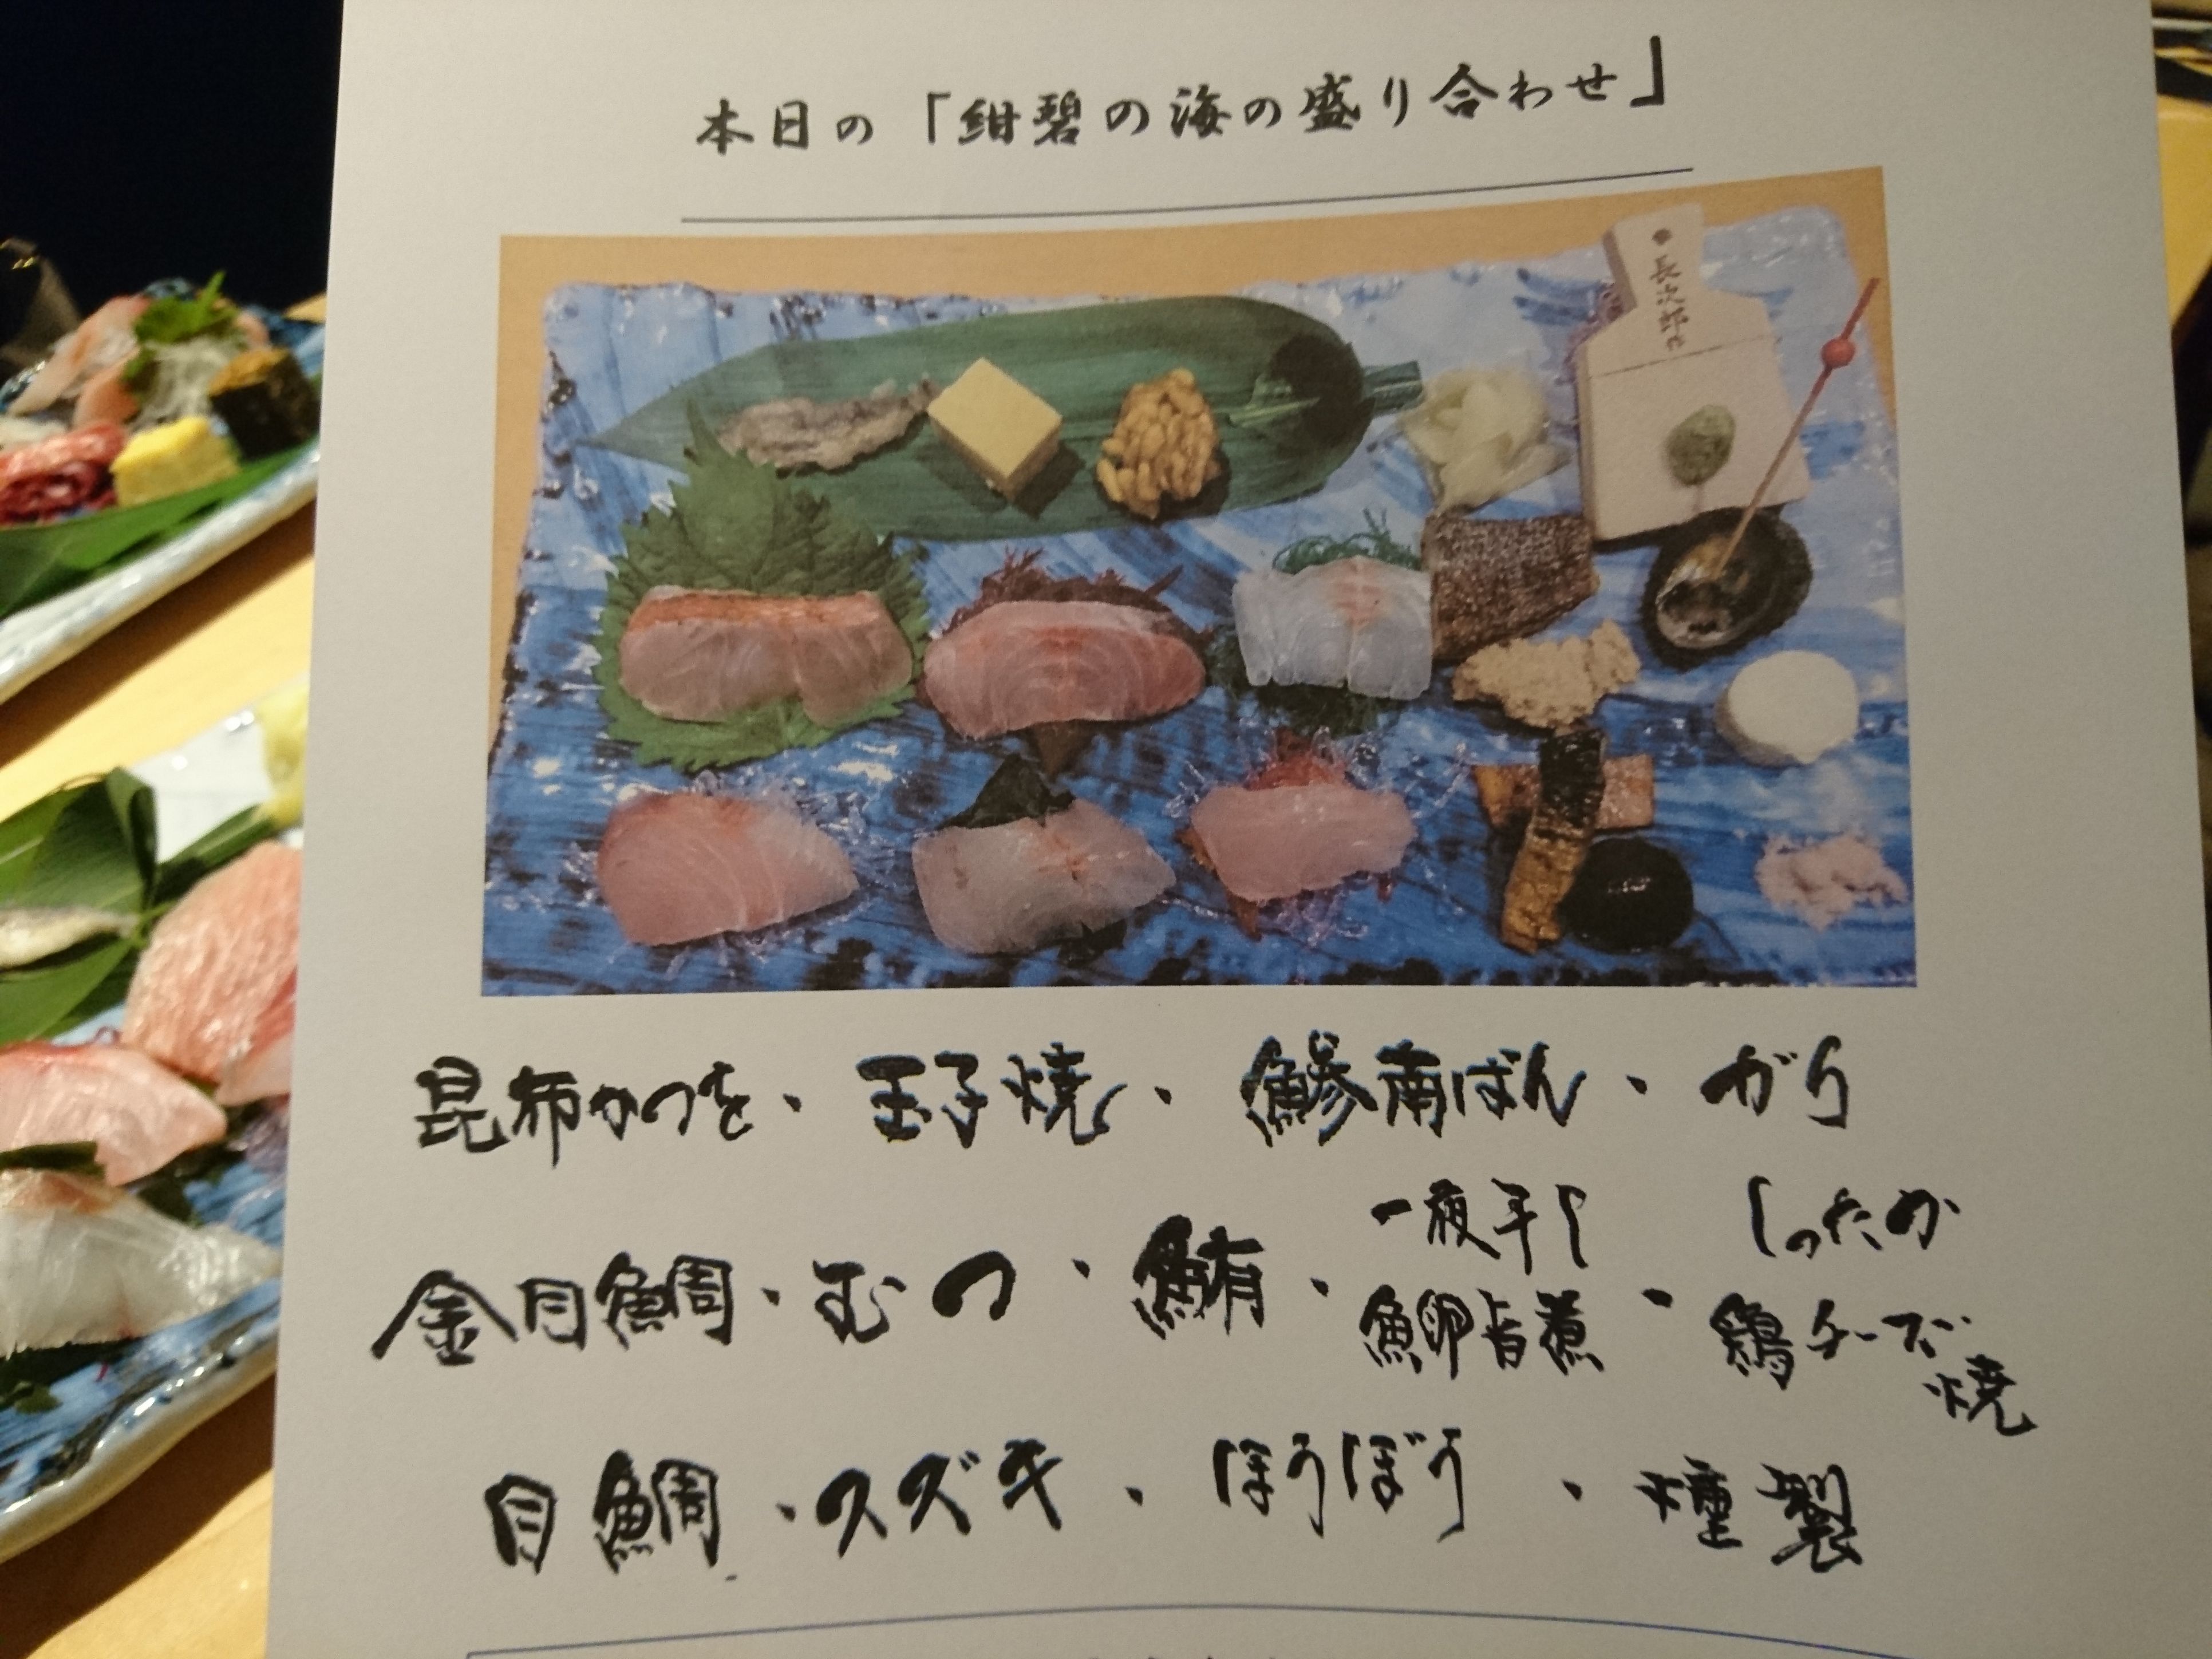 本日の「紺碧の海の盛り合わせ」
長次郎
昆布かつを・玉子焼・鯵南ばん・がり
金目鯛・むつ・鮪・一夜干し 鯤旨煮・しったか 鶏チーズ焼
目鯛・スズキ・ほうぼう・燻製